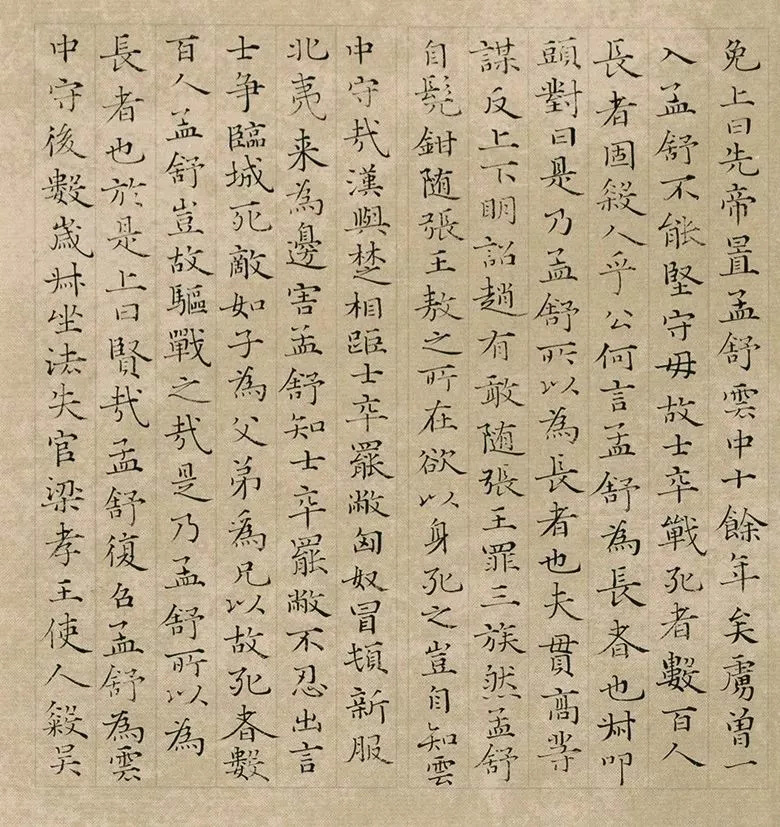 免上曰先帝置孟舒雲中十餘年矣虜曾一
入孟舒不能堅守毋故士卒戰死者數百人
長者固殺人乎公何言孟舒為長者也叔叩
頭對曰是乃孟舒所以為長者也夫貫高等
謀反上下明詔趙有敢随張王罪三族然孟舒
自髡鉗随張王敖之所在欲以身死之豈自知雲
中守哉漢與楚相距士卒罷敝匈奴冒頓新服
北夷来為邊害孟舒知士卒罷敝不忍出言
士爭臨城死敵如子為父弟為兄以故死者數
百人孟舒豈故驅戰之哉是乃孟舒所以為
長者也於是上曰賢哉孟舒復召孟舒為雲
中守後數歲叔坐法失官梁孝王使人殺吴